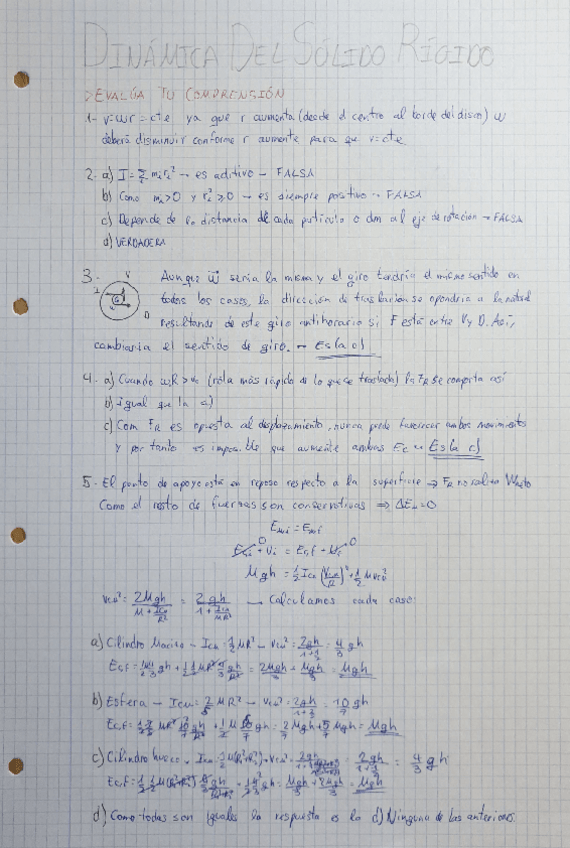 DINÁMICA DEL SÓLIDO RÍGIDO
EVALÚA TU COMPRENSIÓN
1- v=ωr = cte ya que r aumenta (desde el centro al borde del disco) ω
deberá disminuir conforme r aumente para que v=cte
2- a) I=Σ mᵢrᵢ² → es aditivo - FALSA
b) Como mᵢ>0 y rᵢ²≥0 → es siempre positivo → FALSA
c) Depende de la distancia de cada partícula o dm al eje de rotación → FALSA
d) VERDADERA
3- Aunque ω sería la misma y el giro tendría el mismo sentido en
todos los casos, la dirección de traslación se opondría a la
resultante de este giro antihorario si F está entre V y D. Así,
cambiaría el sentido de giro. → Es la c)
4- a) Cuando ωR > (rota más rápido de lo que se traslada) la FR se comporta así
b) Igual que la a)
c) Como FR es opuesta al desplazamiento, nunca puede favorecer ambos movimientos
y por tanto es imposible que aumente ambas Ec → Es la c)
5- El punto de apoyo está en reposo respecto a la superficie → FR no realiza
Como el resto de fuerzas son conservativas ⇒ ΔEm=0
Emi = Emf
Eci + Ui = Ecf + Uf
Mgh = 1/2 Icm (Vcm/R)² + 1/2 M Vcm²
Vcm² = 2Mgh/(M + Icm/R²) = 2gh/(1 + Icm/MR²) → Calculamos cada caso:
a) Cilindro Macizo - Icm = 1/2 MR² - Vcm² = 4/3 gh
= 2Mgh/3 + Mgh/3 = Mgh
b) Esfera - Icm = 2/5 MR² - Vcm² = 10/7 gh
= 2/7 Mgh + 5/7 Mgh = Mgh
c) Cilindro hueco - = 4/3 gh
= Mgh/3 + 2Mgh/3 = Mgh
d) Como todas son iguales la respuesta es la d) Ninguna de las anteriores